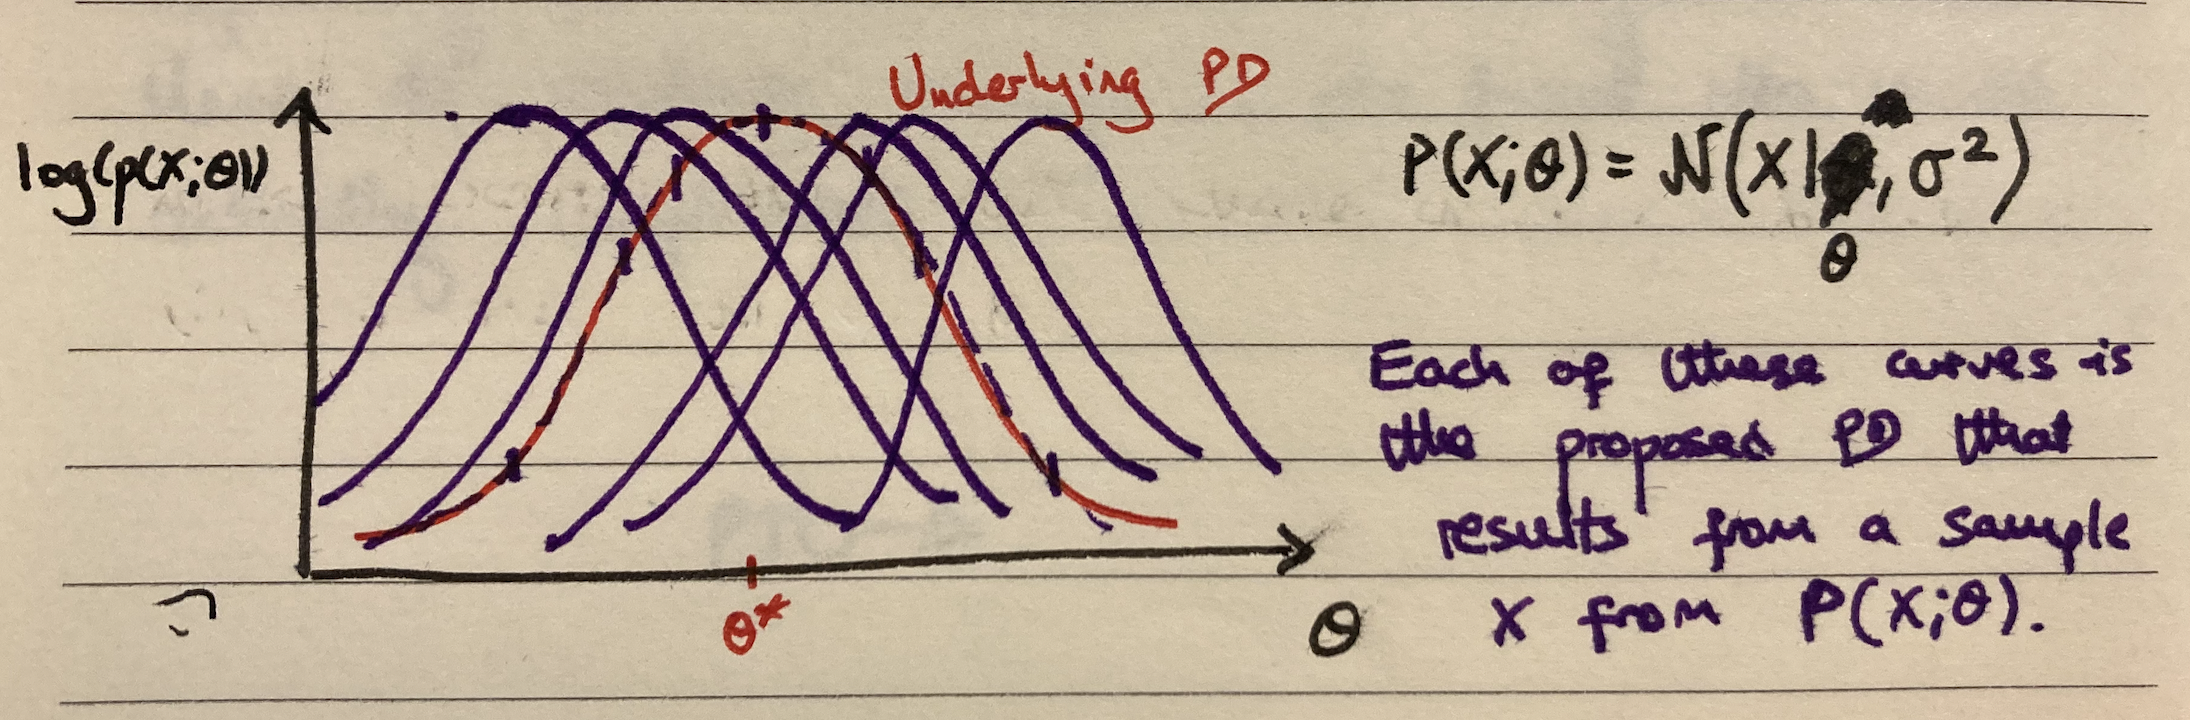 Underlying PD
log(p(X;θ))
P(X;θ) = N(X|θ, σ²)
Each of these curves is
the proposed PD that
results from a sample
X from P(X;θ).
θ*
θ